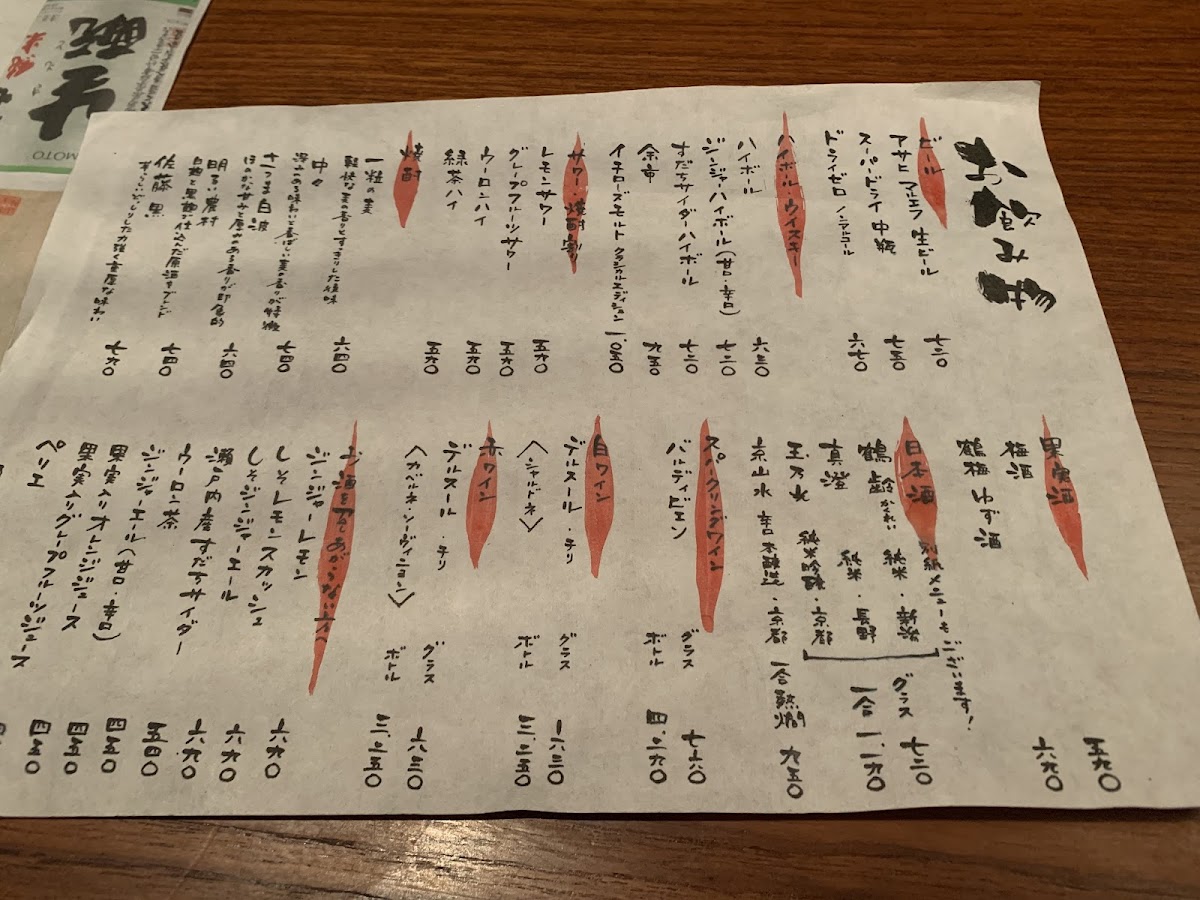 お飲み物
ビール
アサヒ マルエフ 生ビール 七三〇
スーパードライ 中瓶 七五〇
ドライゼロ ノンアルコール 六七〇
ハイボール・ウイスキー
ハイボール 六三〇
ジンジャーハイボール(甘口・辛口) 七三〇
すだちサイダーハイボール 七三〇
余市 九五〇
イチローズモルト クラシカルエディション 一、〇五〇
サワー・焼酎割り
レモンサワー 五六〇
グレープフルーツサワー 五六〇
ウーロンハイ 五六〇
緑茶ハイ 五六〇
焼酎
一粒の麦 六四〇
軽快な麦の香りとすっきりした後味
中々 七四〇
深みのある味わいと香ばしい麦の香りが特徴
さつま白波 六四〇
ほのかな甘さと厚みのある香りが印象的
明るい農村 七四〇
白麹と黒麹で仕込んだ原酒をブレンド
佐藤 黒 七六〇
ずっしりどっしりした力強く重厚な味わい
果実酒
梅酒 五九〇
鶴梅ゆず酒 六九〇
日本酒 別紙メニューもございます!
鶴齢 かくれい 純米・新潟
真澄 純米・長野
玉乃光 純米吟醸・京都
グラス 七二〇
一合 一、一九〇
京山水 辛口本醸造・京都 一合熱燗 九五〇
スパークリングワイン
バルディビエソ
グラス 七六〇
ボトル 四、二六〇
白ワイン
デルスール・チリ
〈シャルドネ〉
グラス 六三〇
ボトル 三、〇五〇
赤ワイン
デルスール・チリ
〈カベルネ・ソーヴィニヨン〉
グラス 六三〇
ボトル 三、〇五〇
お酒をあがらない方へ
ジンジャーレモン 六六〇
しそレモンスカッシュ 六六〇
しそジンジャーエール 六六〇
瀬戸内産すだちサイダー 六六〇
ウーロン茶 五四〇
ジンジャーエール(甘口・辛口) 四五〇
果実入りオレンジジュース 四五〇
果実入りグレープフルーツジュース 四五〇
ペリエ
MOTO